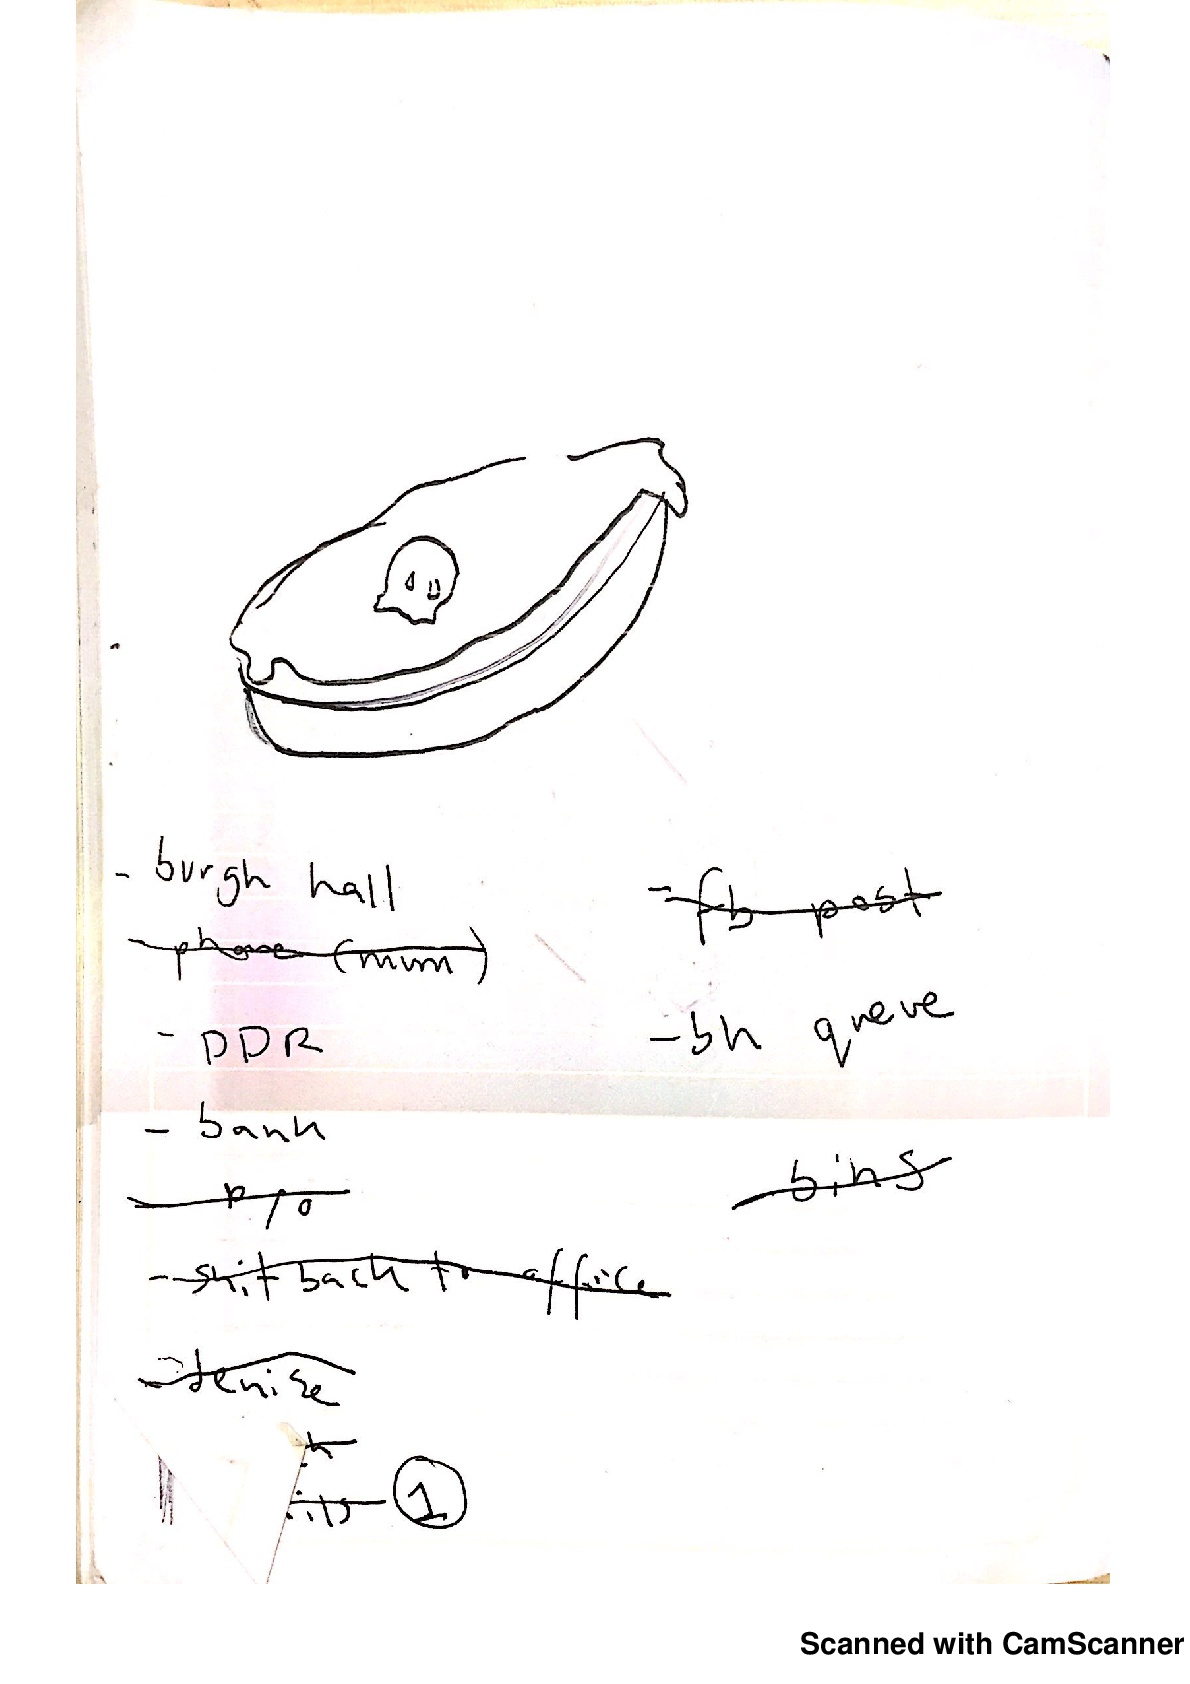 - burgh hall
- phone (mum)
- DDR
- bank
p/o
- shit back to office
- denise
- fb post
- bh queue
bins
1
Scanned with CamScanner